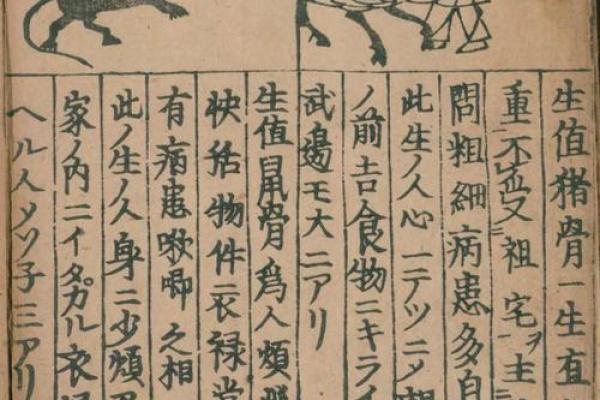 生値猪骨一生直
重不受祖宅ヲ主
問粗細病患多自
此生ノ人心一ニテツニメ
ノ前吉食物ニキライ
武邊モ大ニアリ
生値鼠骨為人煩
快活物件衣禄
有病患嗽唧之相
此ノ生ノ人身ニ少煩
家ノ内ニイタガル衣
ヘル人メソ子三アリ